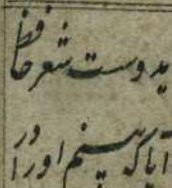 بدوست شعر حافظ
آیا که بینم او را